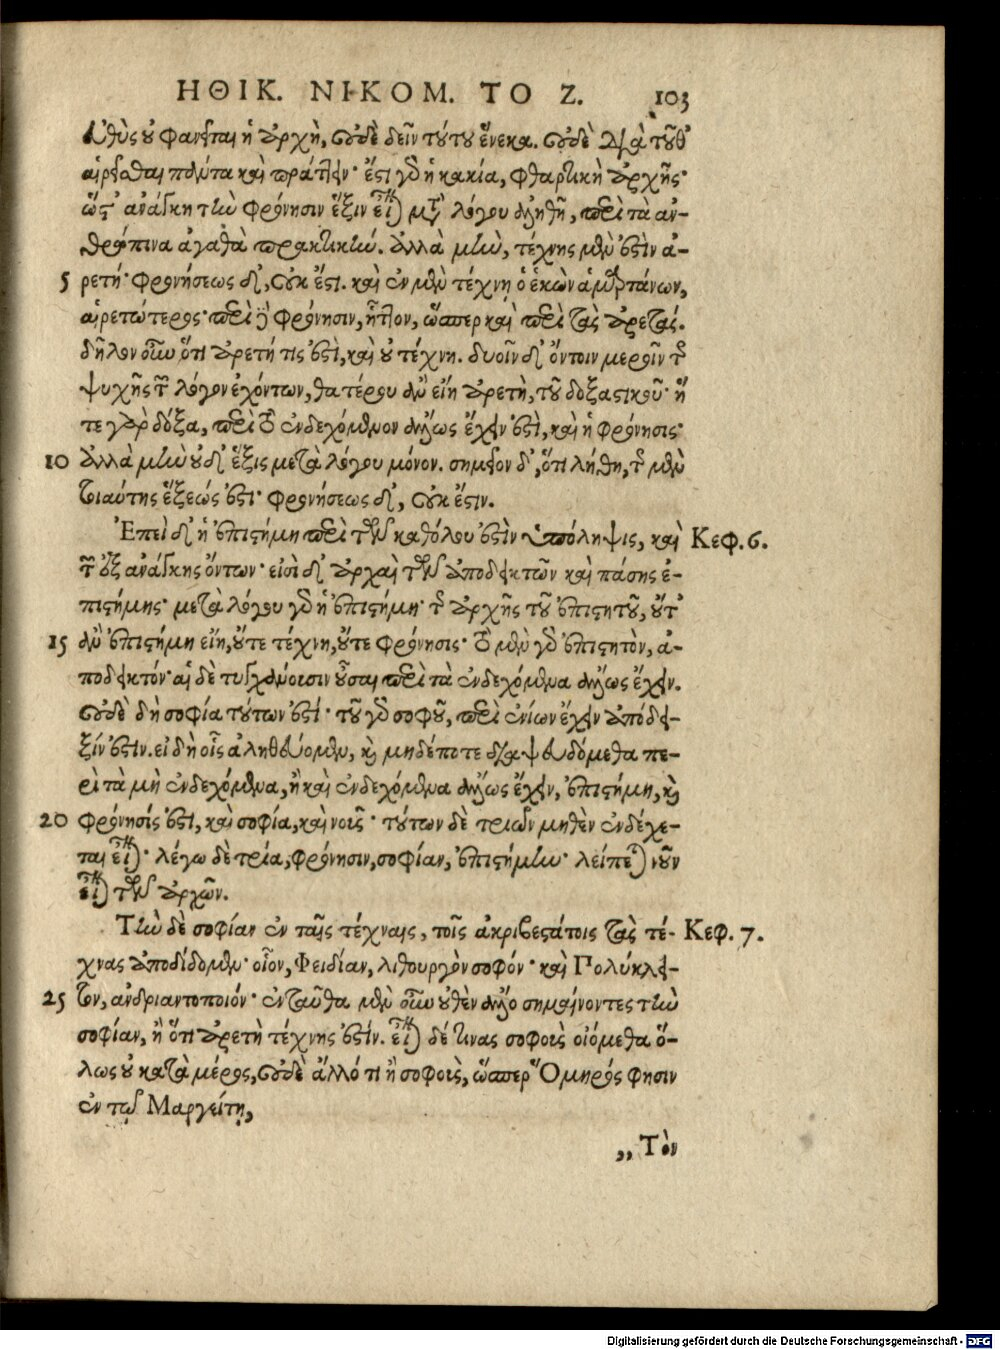 ΗΘΙΚ. ΝΙΚΟΜ. ΤΟ Ζ. 103
εὐθὺς οὐ φανεῖται ἡ ἀρχὴ, οὐδὲ δεῖν τούτου ἕνεκα. οὐδὲ διὰ τοῦθ'
αἱρεῖσθαι πάντα καὶ πράττειν· ἔστι γὰρ ἡ κακία, φθαρτικὴ ἀρχῆς·
ὥστ' ἀνάγκη τὴν φρόνησιν ἕξιν εἶναι μετὰ λόγου ἀληθῆ, περὶ τὰ ἀν-
θρώπινα ἀγαθὰ πρακτικήν. ἀλλὰ μὴν, τέχνης μὲν ἐστὶν ἀ-
5 ρετή· φρονήσεως δ', οὐκ ἔστι. καὶ ἐν μὲν τέχνῃ ὁ ἑκὼν ἁμαρτάνων,
αἱρετώτερος· περὶ δὲ φρόνησιν, ἧττον, ὥσπερ καὶ περὶ τὰς ἀρετάς.
δῆλον οὖν ὅτι ἀρετή τις ἐστὶ, καὶ οὐ τέχνη. δυοῖν δ' ὄντοιν μεροῖν τῆς
ψυχῆς τῶν λόγον ἐχόντων, θατέρου ἂν εἴη ἀρετὴ, τοῦ δοξαστικοῦ· ἥ
τε γὰρ δόξα, περὶ τὸ ἐνδεχόμενον ἄλλως ἔχειν ἐστὶ, καὶ ἡ φρόνησις·
10 ἀλλὰ μὴν οὐδ' ἕξις μετὰ λόγου μόνον. σημεῖον δ', ὅτι λήθη, τῆς μὲν
τοιαύτης ἕξεώς ἐστι· φρονήσεως δ', οὐκ ἔστιν.
Ἐπεὶ δ' ἡ ἐπιστήμη περὶ τῶν καθόλου ἐστὶν ὑπόληψις, καὶ Κεφ. 6.
τῶν ἐξ ἀνάγκης ὄντων· εἰσὶ δ' ἀρχαὶ τῶν ἀποδεικτῶν καὶ πάσης ἐ-
πιστήμης· μετὰ λόγου γὰρ ἡ ἐπιστήμη· τῆς ἀρχῆς τοῦ ἐπιστητοῦ, οὔτ'
15 ἂν ἐπιστήμη εἴη, οὔτε τέχνη, οὔτε φρόνησις· τὸ μὲν γὰρ ἐπιστητὸν, ἀ-
ποδεικτόν· αἱ δὲ τυγχάνουσιν οὖσαι περὶ τὰ ἐνδεχόμενα ἄλλως ἔχειν.
οὐδὲ δὴ σοφία τούτων ἐστί· τοῦ γὰρ σοφοῦ, περὶ ἐνίων ἔχειν ἀπόδει-
ξίν ἐστιν. εἰ δὴ οἷς ἀληθεύομεν, καὶ μηδέποτε διαψευδόμεθα πε-
ρὶ τὰ μὴ ἐνδεχόμενα, ἢ καὶ ἐνδεχόμενα ἄλλως ἔχειν, ἐπιστήμη, καὶ
20 φρόνησίς ἐστι, καὶ σοφία, καὶ νοῦς· τούτων δὲ τριῶν μηθὲν ἐνδέχε-
ται εἶναι· λέγω δὲ τρία, φρόνησιν, σοφίαν, ἐπιστήμην· λείπεται νοῦν
εἶναι τῶν ἀρχῶν.
Τὴν δὲ σοφίαν ἐν ταῖς τέχναις, τοῖς ἀκριβεστάτοις τὰς τέ- Κεφ. 7.
χνας ἀποδίδομεν· οἷον, Φειδίαν, λιθουργὸν σοφόν· καὶ Πολύκλει-
25 τον, ἀνδριαντοποιόν· ἐνταῦθα μὲν οὖν οὐθὲν ἄλλο σημαίνοντες τὴν
σοφίαν, ἢ ὅτι ἀρετὴ τέχνης ἐστίν. εἶναι δέ τινας σοφοὺς οἰόμεθα ὅ-
λως οὐ κατὰ μέρος, οὐδὲ ἄλλό τι ἢ σοφοὺς, ὥσπερ Ὅμηρός φησιν
ἐν τῷ Μαργείτῃ,
„Τὸν
Digitalisierung gefördert durch die Deutsche Forschungsgemeinschaft - DFG